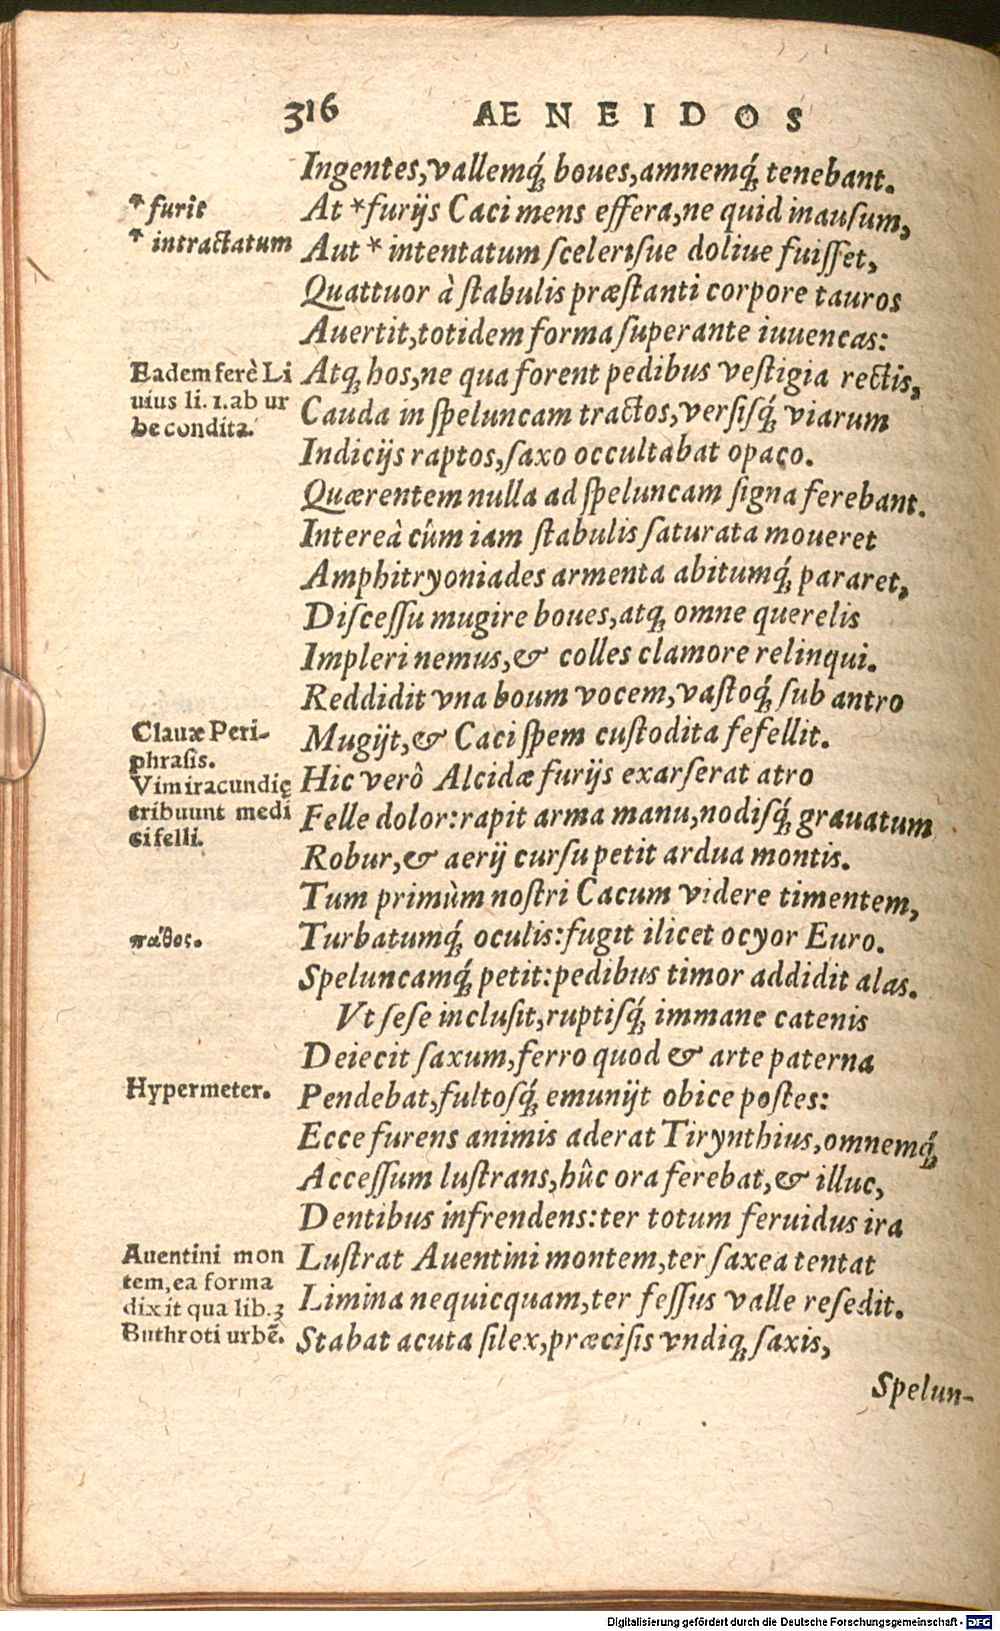 316 AENEIDOS
Ingentes, vallemq́; boues, amnemq́; tenebant.
* furit
At * furijs Caci mens effera, ne quid inausum,
* intractatum
Aut * intentatum scelerisue doliue fuisset,
Quattuor à stabulis præstanti corpore tauros
Auertit, totidem forma superante iuuencas:
Eadem ferè Li
uius li. 1. ab ur
be condita.
Atq; hos, ne qua forent pedibus vestigia rectis,
Cauda in speluncam tractos, versisq́; viarum
Indicijs raptos, saxo occultabat opaco.
Quærentem nulla ad speluncam signa ferebant.
Intereà cûm iam stabulis saturata moueret
Amphitryoniades armenta abitumq́; pararet,
Discessu mugire boues, atq; omne querelis
Impleri nemus, & colles clamore relinqui.
Reddidit vna boum vocem, vastoq́; sub antro
Clauæ Peri-
phrasis.
Mugijt, & Caci spem custodita fefellit.
Vim iracundię
tribuunt medi
ci felli.
Hic verô Alcidæ furijs exarserat atro
Felle dolor: rapit arma manu, nodisq́; grauatum
Robur, & aerij cursu petit ardua montis.
Tum primùm nostri Cacum videre timentem,
πάθος.
Turbatumq́; oculis: fugit ilicet ocyor Euro.
Speluncamq́; petit: pedibus timor addidit alas.
Vt sese inclusit, ruptisq́; immane catenis
Deiecit saxum, ferro quod & arte paterna
Hypermeter.
Pendebat, fultosq́; emunijt obice postes:
Ecce furens animis aderat Tirynthius, omnemq́;
Accessum lustrans, hûc ora ferebat, & illuc,
Dentibus infrendens: ter totum feruidus ira
Auentini mon
tem, ea forma
dixit qua lib. 3
Buthroti urbē.
Lustrat Auentini montem, ter saxea tentat
Limina nequicquam, ter fessus valle resedit.
Stabat acuta silex, præcisis vndiq; saxis,
Spelun-
Digitalisierung gefördert durch die Deutsche Forschungsgemeinschaft - DFG